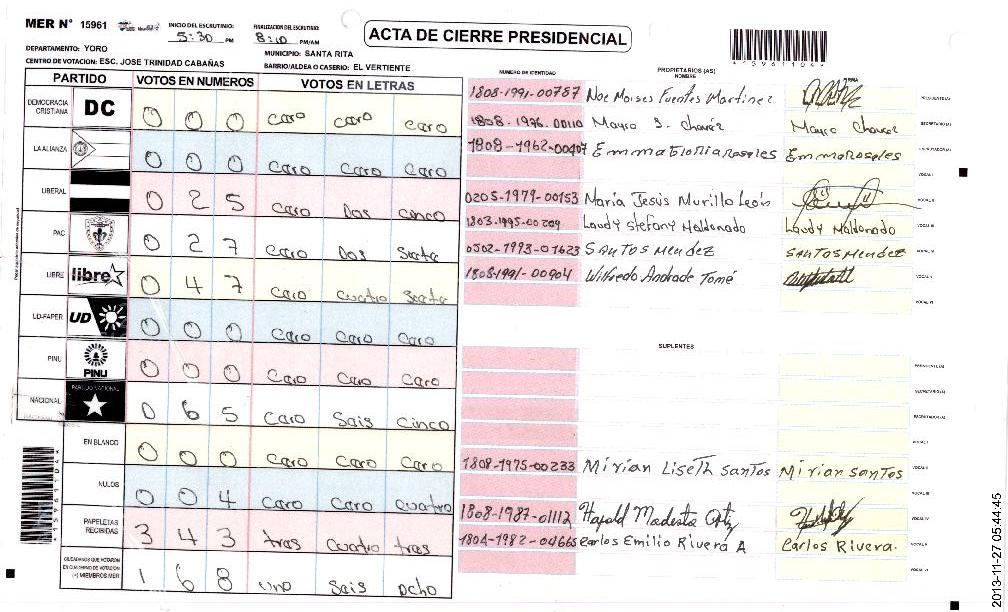 MER N° 15961 INICIO DEL ESCRUTINIO: 5:30 PM FINALIZACION DEL ESCRUTINIO: 8:10 PM/AM
ACTA DE CIERRE PRESIDENCIAL
*159611044*
DEPARTAMENTO: YORO MUNICIPIO: SANTA RITA
CENTRO DE VOTACION: ESC. JOSE TRINIDAD CABAÑAS BARRIO/ALDEA O CASERIO: EL VERTIENTE
PARTIDO VOTOS EN NUMEROS VOTOS EN LETRAS
DEMOCRACIA CRISTIANA DC 0 0 0 caro caro caro
LA ALIANZA 0 0 0 caro caro caro
LIBERAL 0 2 5 caro Dos cinco
PAC 0 2 7 caro Dos Siete
LIBRE libre 0 4 7 caro cuatro Siete
UD-FAPER UD 0 0 0 caro caro caro
PINU PINU 0 0 0 caro caro caro
NACIONAL PARTIDO NACIONAL 0 6 5 caro Sais cinco
EN BLANCO 0 0 0 caro caro caro
NULOS 0 0 4 caro caro cuatro
PAPELETAS RECIBIDAS 3 4 3 tras cuatro tras
CIUDADANOS QUE VOTARON EN CUADERNO DE VOTACION (+) MIEMBROS MER 1 6 8 uno Sais ocho
NUMERO DE IDENTIDAD PROPIETARIOS (AS) NOMBRE FIRMA
1808-1991-00787 Noe Moises Fuentes Martinez PRESIDENTE (A)
1808-1996-00110 Mayro J. Chavéz Mayro Chavez SECRETARIO (A)
1808-1962-00407 Emma Gloria rosales Emma Rosales ESCRUTADOR (A)
VOCAL I
0205-1979-00153 María Jesús Murillo León VOCAL II
1803-1995-00209 Laudy Stefany Maldonado Laudy Maldonado VOCAL III
0502-1993-01623 Santos Mendez Santos Mendez VOCAL IV
1808-1991-00904 Wilfredo Andrade Tomé VOCAL V
VOCAL VI
SUPLENTES
PRESIDENTE (A)
SECRETARIO (A)
ESCRUTADOR (A)
VOCAL I
1808-1975-00233 Mirian Liseth Santos Mirian Santos VOCAL II
VOCAL III
1808-1987-01112 Harold Modesto Ortiz VOCAL IV
1804-1982-04665 Carlos Emilio Rivera A Carlos Rivera. VOCAL V
VOCAL VI
2013-11-27 05:44:45